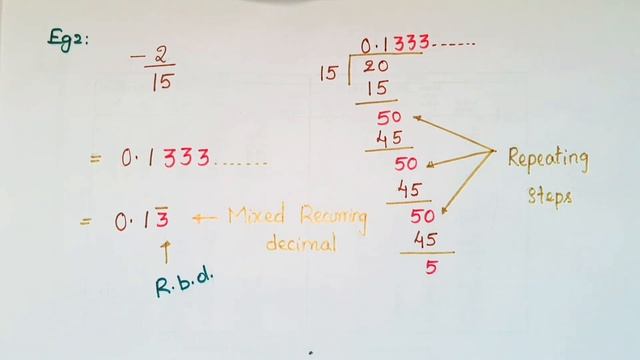 Eg2:
- 2
15
= 0.1333.......
= 0.13̅ ← Mixed Recurring
decimal
R.b.d.
0.1333......
15 20
15
50
45
50
45
50
45
5
Repeating
Steps